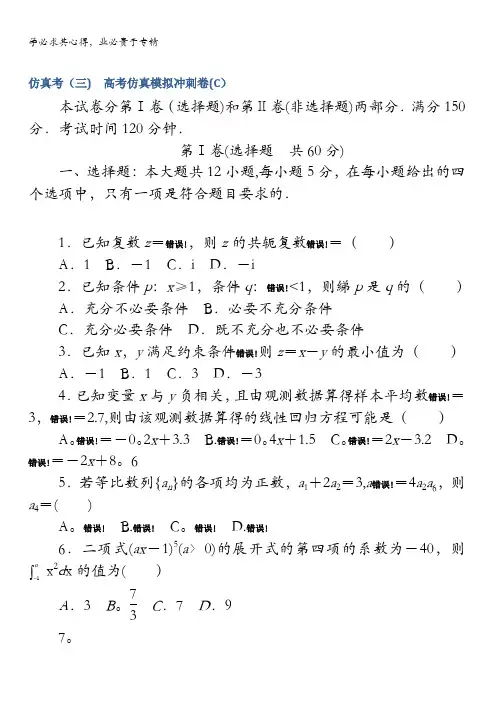 学必求共心得，业必贵于专精
仿真考（三） 高考仿真模拟冲刺卷(C)
本试卷分第Ⅰ卷（选择题)和第Ⅱ卷(非选择题)两部分．满分150
分．考试时间120分钟．
第Ⅰ卷(选择题 共60分)
一、选择题：本大题共12小题,每小题5分，在每小题给出的四
个选项中，只有一项是符合题目要求的．
1．已知复数z＝错误!，则z的共轭复数错误!＝（ ）
A．1 B．－1 C．i D．－i
2．已知条件p：x≥1，条件q：错误!<1，则綈p是q的（ ）
A．充分不必要条件 B．必要不充分条件
C．充分必要条件 D．既不充分也不必要条件
3．已知x，y满足约束条件错误!则z＝x－y的最小值为（ ）
A．－1 B．1 C．3 D．－3
4．已知变量x与y负相关，且由观测数据算得样本平均数错误!＝
3，错误!＝2.7,则由该观测数据算得的线性回归方程可能是（ ）
A。错误!＝－0。2x＋3.3 B.错误!＝0。4x＋1.5 C。错误!＝2x－3.2 D。
错误!＝－2x＋8。6
5．若等比数列{aₙ}的各项均为正数，a₁＋2a₂＝3,a错误!＝4a₂a₆，则
a₄＝( )
A。错误! B.错误! C。错误! D.错误!
6．二项式(ax－1)⁵(a〉0)的展开式的第四项的系数为－40，则
∫ᵃ₋₁ x²dx的值为( )
A．3 B。7/3 C．7 D．9
7。